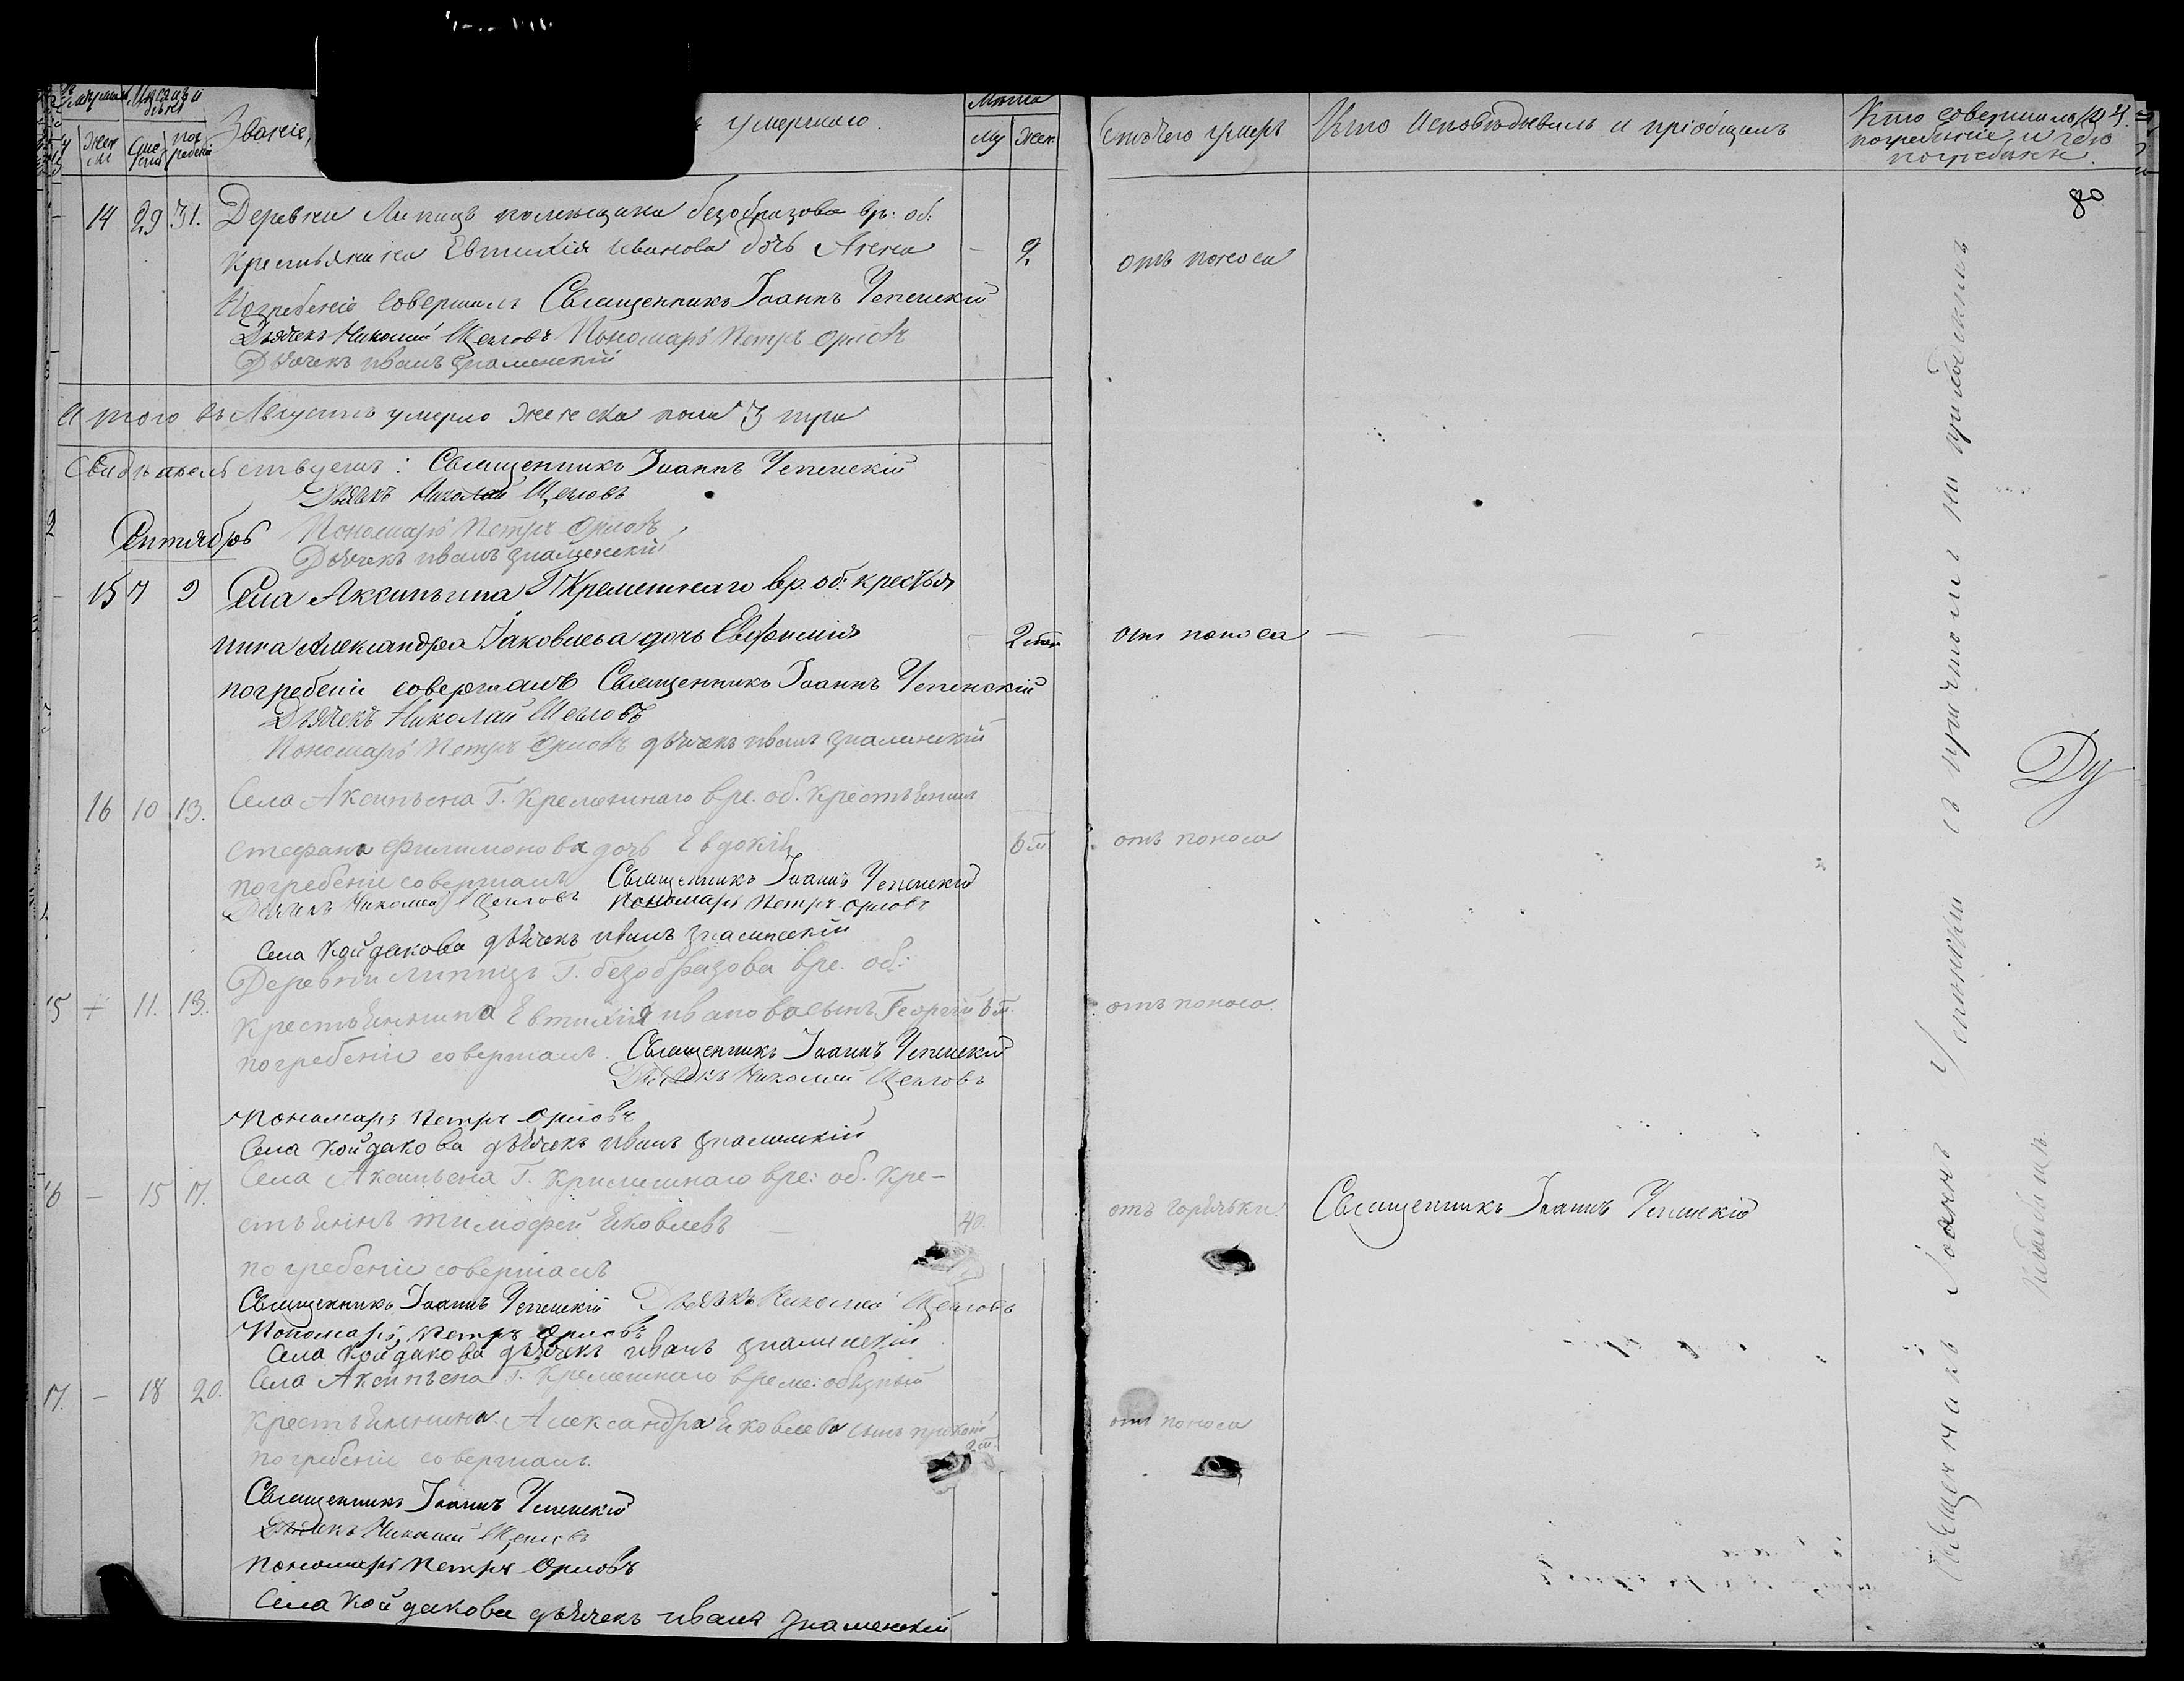 умершихъ Мѣсяцъ и
день
Лѣта
Жен
ски
Смерти
погребенія
Званіе,
умершаго.
Му
Жен.
Отъ чего умеръ
Кто исповѣдывалъ и пріобщалъ
Кто совершилъ
погребеніе и гдѣ
погребены.
80
14 29 31. Деревни Липицъ помещика безобразова вр: об:
крестьянина Евтихія Иванова дочь Анна - 2 отъ поноса
Погребеніе совершалъ Священникъ Іоаннъ Успенскій
Дьячекъ Николай Щегловъ Пономарь Петръ Орловъ
Дьячекъ иванъ знаменскій
Итого въ Августѣ умерло женска пола 3 три
Свидѣтельствуемъ: Священникъ Іоаннъ Успенскій
Дьячекъ Николай Щегловъ
Сентябрь
Пономарь Петръ Орловъ
Дѣячекъ иванъ знаменскій
15 7 9 Села Аксиньина Г Кремешнаго вр. об: крестья
нина Александра Іаковлева дочь Евфимія - 2 отъ поноса
погребеніе совершалъ Священникъ Іоаннъ Успенскій
Дьячекъ Николай Щегловъ
Пономарь Петръ Орловъ дѣячекъ иванъ знаменскій
16 10 13. Села Аксиньена Г. Кремешнаго вре. об. крестьенина
Стефана Филимонова дочь Евдокія 6 м отъ поноса
погребеніе совершалъ Священникъ Іоаннъ Успенскій
Дьячекъ Николай Щегловъ Пономарь Петръ Орловъ
Села Койдакова дѣячекъ иванъ знаменскій
Деревни Липицъ Г. безобразова вре. об:
15 11. 13. крестьеннина Евтихія иванова сынъ Георгій 6 м. отъ поноса
погребеніе совершалъ. Священникъ Іоаннъ Успенскій
Дьячекъ Николай Щегловъ
Пономарь Петръ Орловъ
Села Койдакова дѣячекъ иванъ знаменскій
16 - 15 17. Села Аксиньена Г. Кримешнаго вре: об. кре-
стьеннъ Тимофей Яковлевъ 40. отъ горячьки. Священникъ Іоаннъ Успенскій
погребеніе совершалъ
Священникъ Іоаннъ Успенскій Дьячекъ Николай Щегловъ
Пономарь Петръ Орловъ
Села Койдакова дѣячекъ иванъ знаменскій
17. - 18 20. Села Аксиньена Г. Кремешнаго време: обязный
крестьенина Александра Яковлева сынъ отъ поноса
погребеніе совершалъ.
Священникъ Іоаннъ Успенскій
Дьячекъ Николай Щегловъ
Пономарь Петръ Орловъ
Села Койдакова дѣячекъ иванъ знаменскій
Священникъ Іоаннъ Успенскій съ причтомъ на приходскомъ
кладбищѣ.
Ду